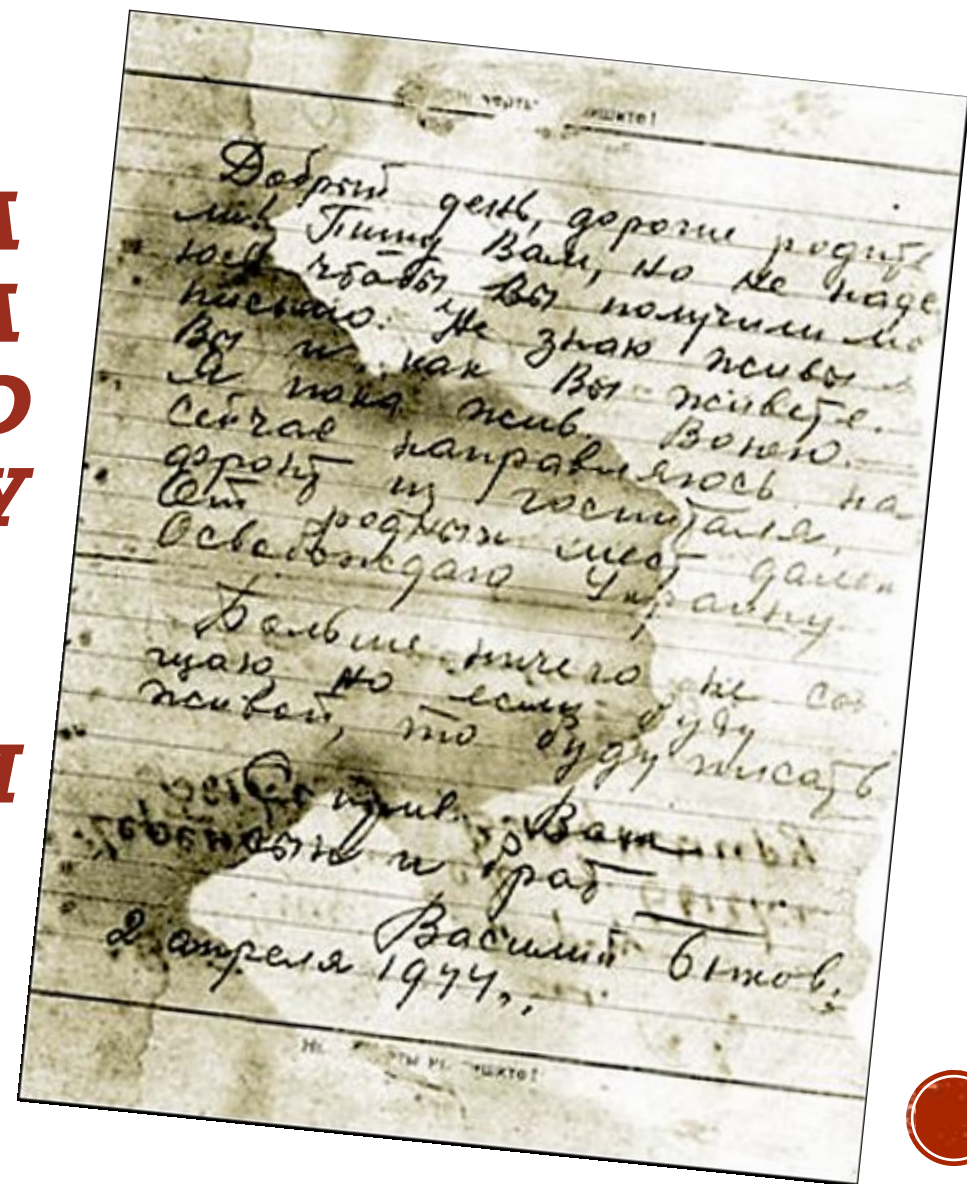 А
А
О
У
И
черты
ишите!
Добрый день, дорогие родите
ли. Пишу Вам, но не наде
юсь чтобы Вы получили мо
письмо. Не знаю живы
Вы и как Вы живете.
Я пока жив. Воюю.
Сейчас направляюсь на
фронт из госпиталя.
От родных мест далек
Освобождаю Украину.
Больше ничего не соо
щаю, но если буду
живой, то буду писать
Ваш
сын и брат
Василий Быков.
2 апреля 1944.
ты
ишите!